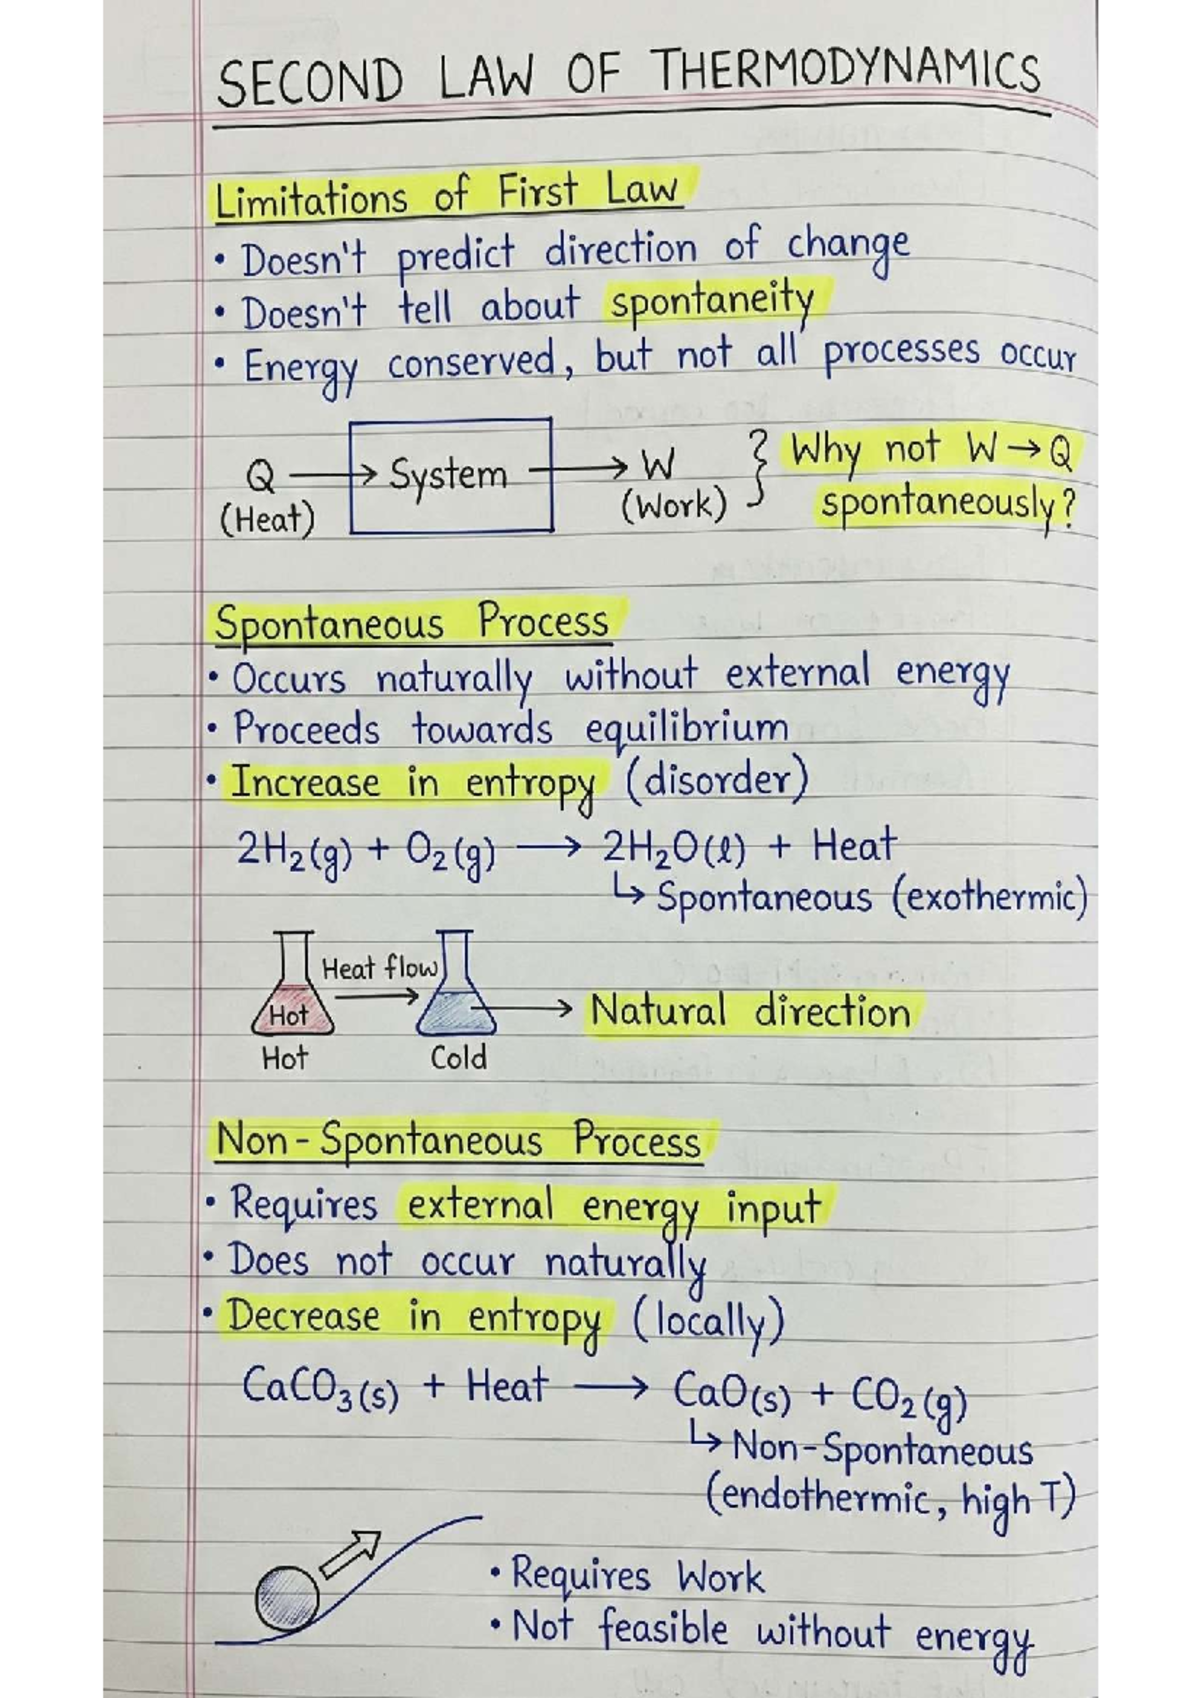 SECOND LAW OF THERMODYNAMICS
Limitations of First Law
• Doesn't predict direction of change
• Doesn't tell about spontaneity
• Energy conserved, but not all processes occur
Q → System → W } Why not W → Q
(Heat) (Work) spontaneously?
Spontaneous Process
• Occurs naturally without external energy
• Proceeds towards equilibrium
• Increase in entropy (disorder)
2H₂(g) + O₂(g) → 2H₂O(l) + Heat
↳ Spontaneous (exothermic)
Heat flow
Hot → Natural direction
Hot Cold
Non-Spontaneous Process
• Requires external energy input
• Does not occur naturally
• Decrease in entropy (locally)
CaCO₃(s) + Heat → CaO(s) + CO₂(g)
↳ Non-Spontaneous
(endothermic, high T)
• Requires Work
• Not feasible without energy